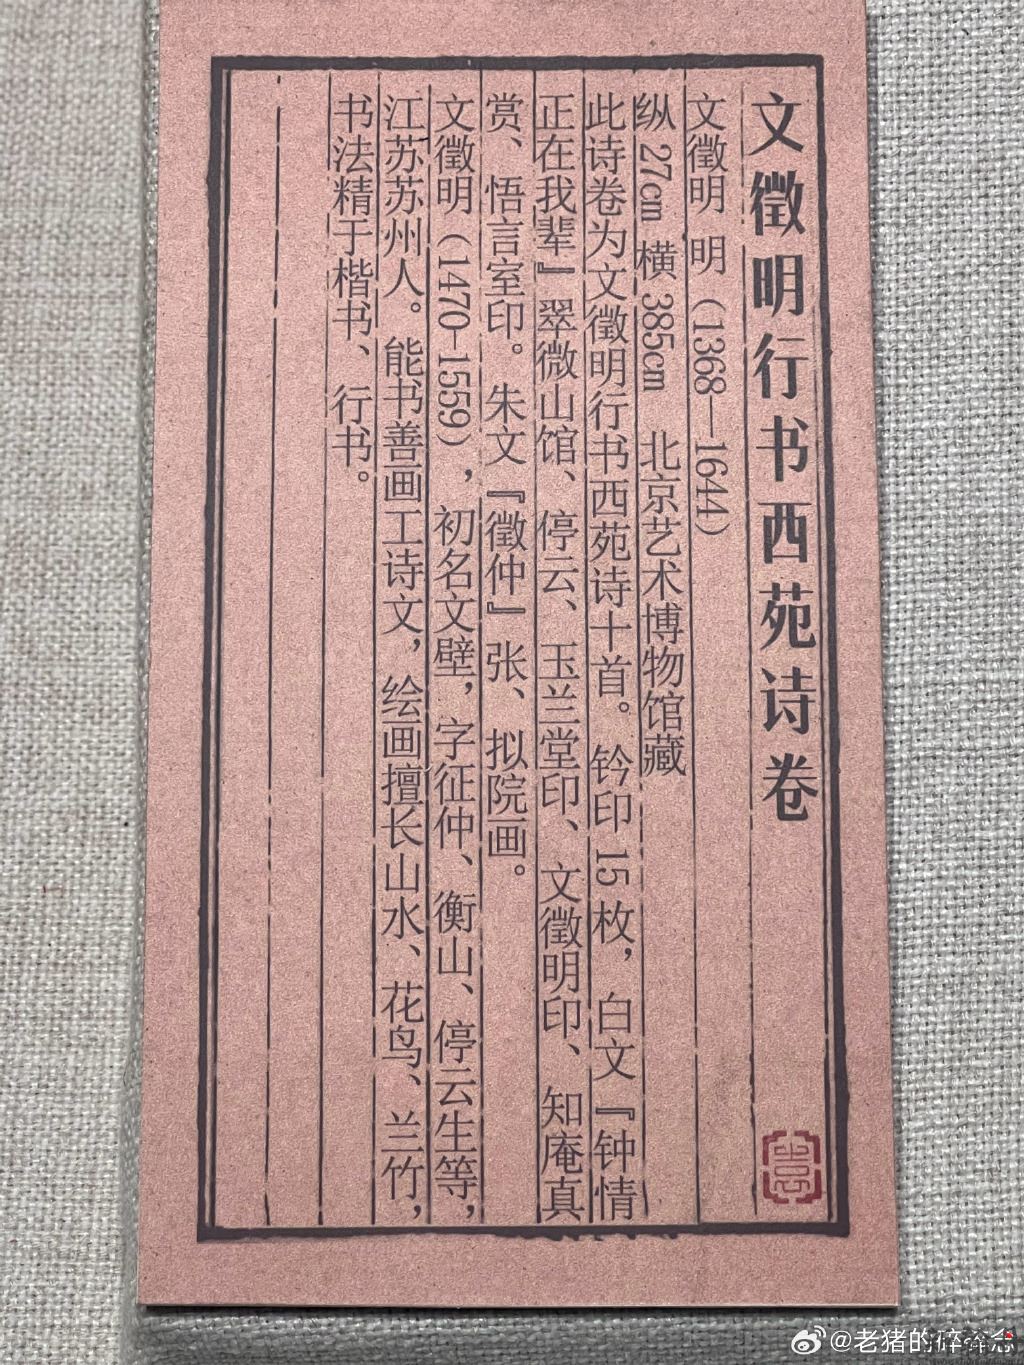 文徵明行书西苑诗卷
文徵明 明（1368—1644）
纵 27cm 横 385cm 北京艺术博物馆藏
此诗卷为文徵明行书西苑诗十首。钤印 15 枚，白文『钟情
正在我辈』翠微山馆、停云、玉兰堂印、文徵明印、知庵真
赏、悟言室印。朱文『徵仲』张、拟院画。
文徵明（1470-1559），初名文壁，字征仲、衡山、停云生等，
江苏苏州人。能书善画工诗文，绘画擅长山水、花鸟、兰竹，
书法精于楷书、行书。
@老猪的碎碎念